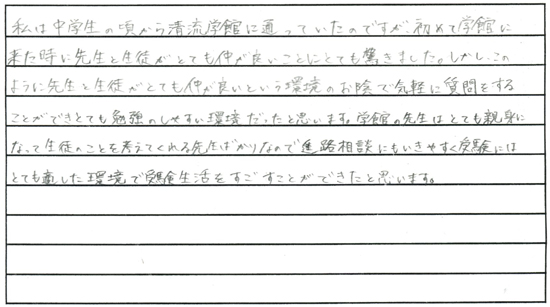 私は中学生の頃から清流学館に通っていたのですが、初めて学館に
来た時に先生と生徒がとても仲が良いことにとても驚きました。しかし、この
ように先生と生徒がとても仲が良いという環境のお陰で気軽に質問をする
ことができとても勉強のしやすい環境だったと思います。学館の先生はとても親身に
なって生徒のことを考えてくれる先生ばかりなので進路相談にもいきやすく受験には
とても適した環境で受験生活をすごすことができたと思います。